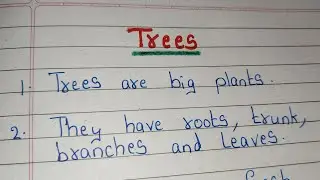 Trees
1. Trees are big plants.
2. They have roots, trunk,
branches and leaves.